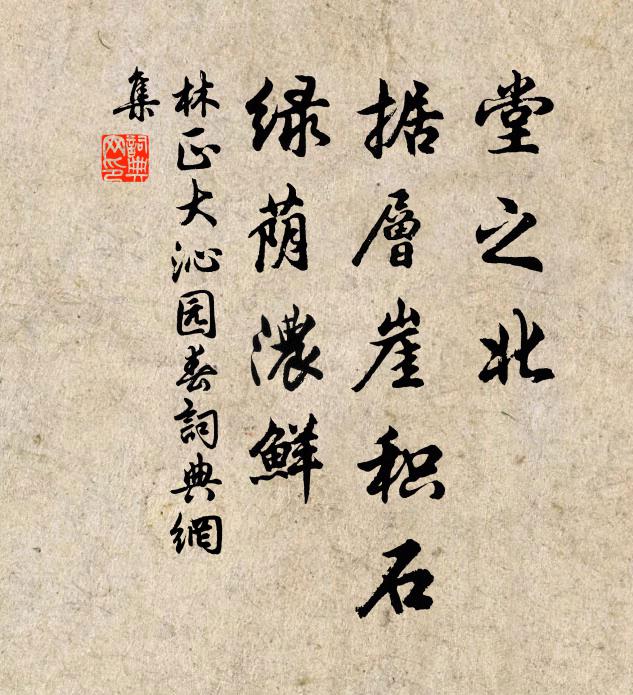 堂之北
据層崖积石
绿荫濃鮮
林正大沁园春詞典網
集
詞典網印